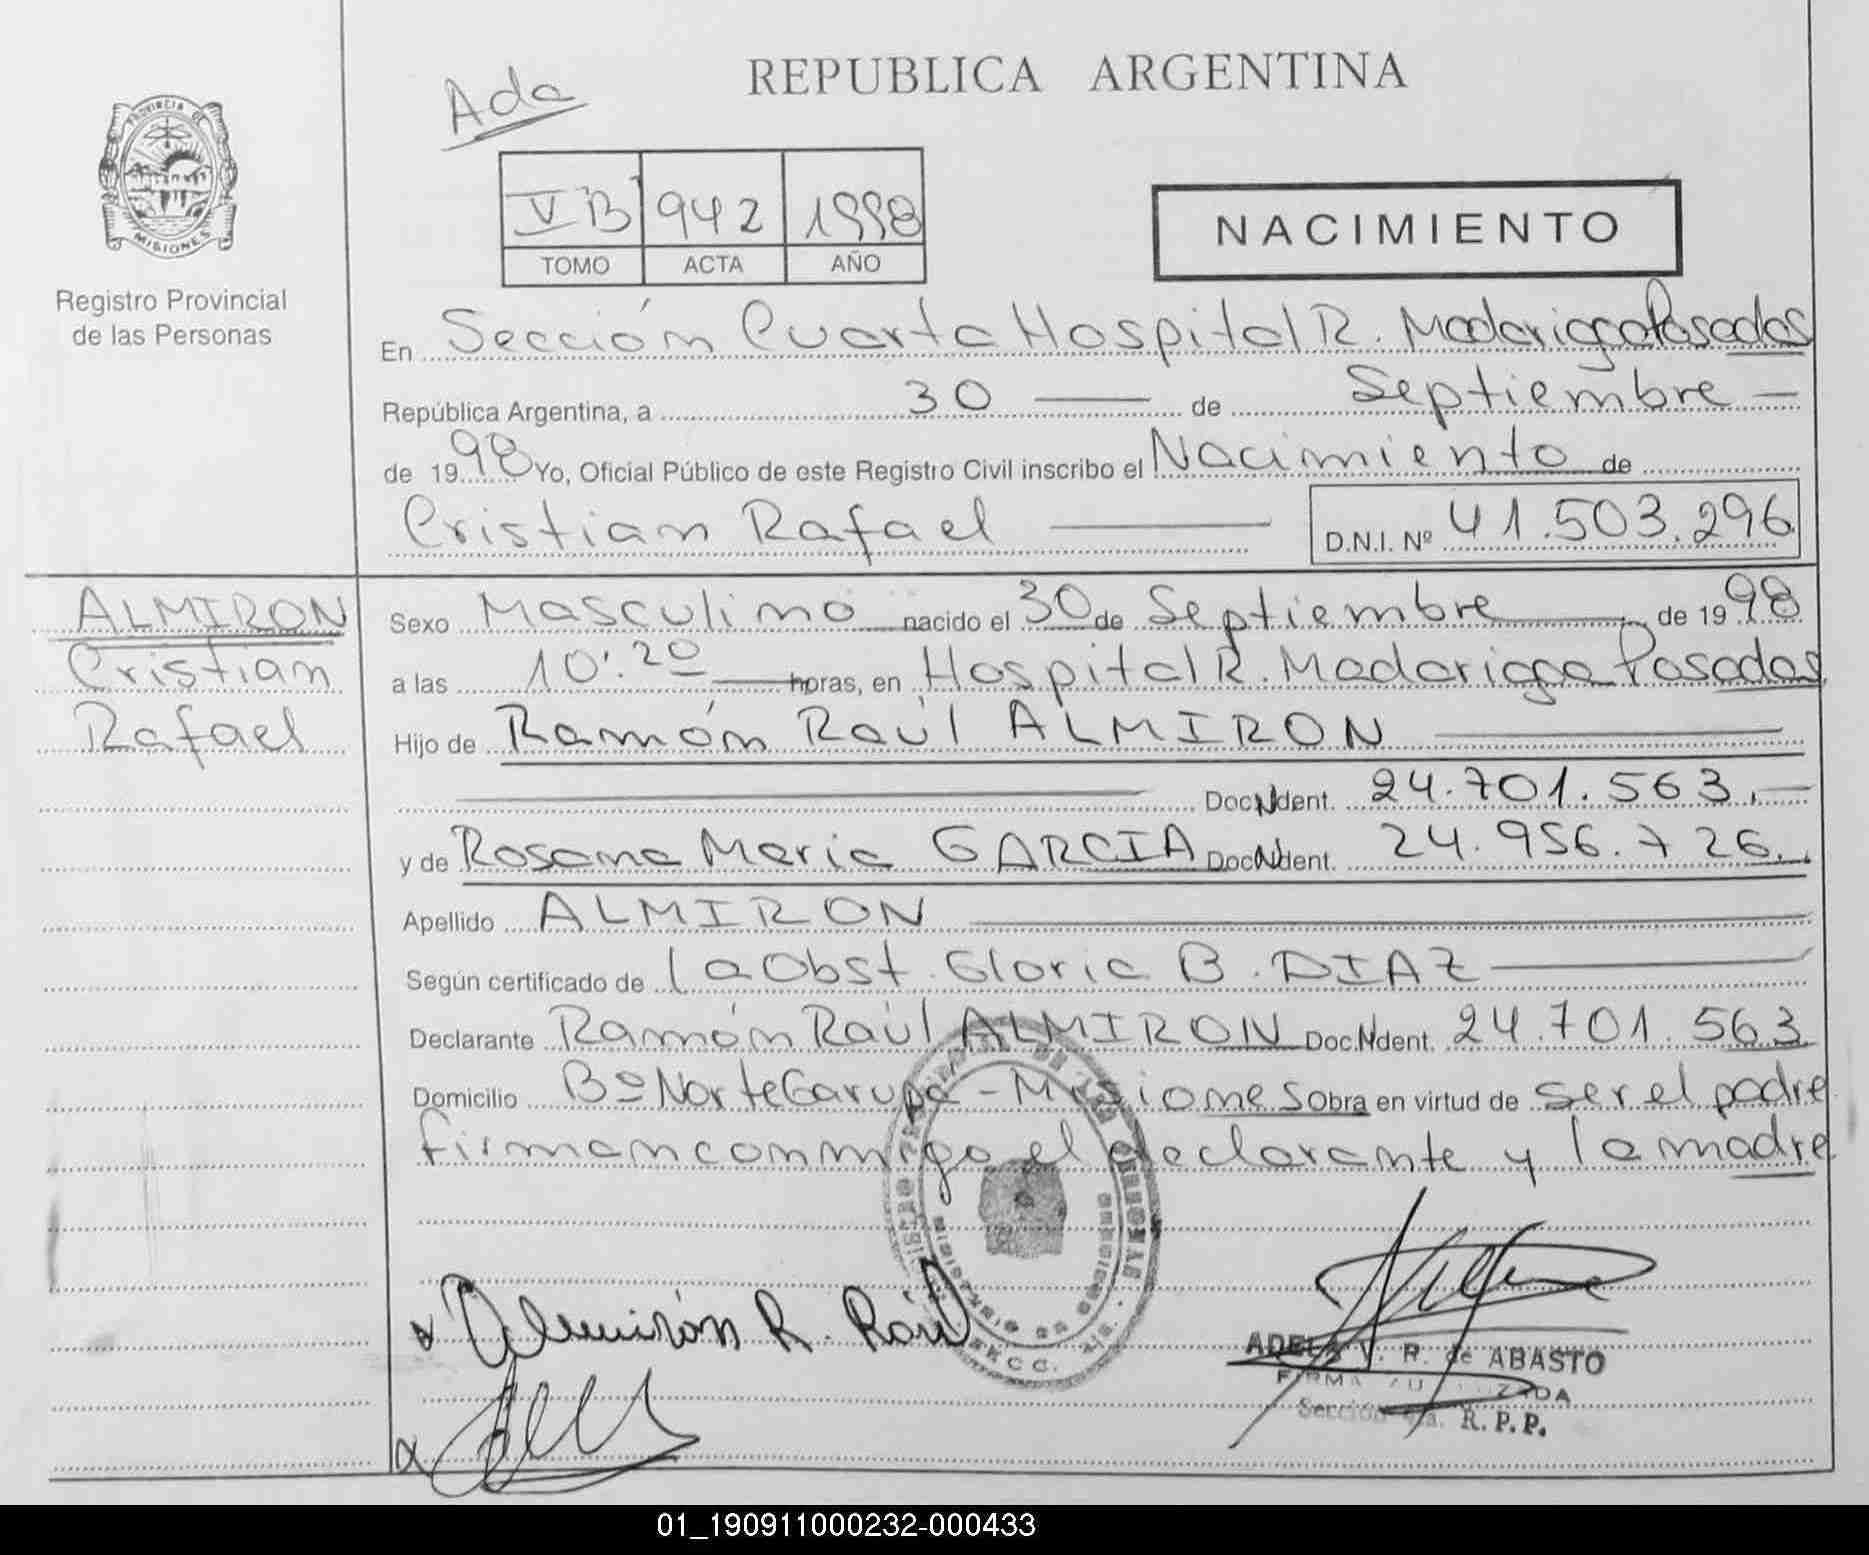 Ada
REPUBLICA ARGENTINA
PROVINCIA DE
MISIONES
V "B" 942 1998
TOMO ACTA AÑO
NACIMIENTO
Registro Provincial
de las Personas
En Sección Cuarta Hospital R. Madariaga Posadas
República Argentina, a 30 de Septiembre
de 1998 Yo, Oficial Público de este Registro Civil inscribo el Nacimiento de
Cristian Rafael D.N.I. Nº 41.503.296
ALMIRON
Cristian
Rafael
Sexo Masculino nacido el 30 de Septiembre de 1998
a las 10:20 horas, en Hospital R. Madariaga Posadas
Hijo de Ramón Raúl ALMIRON
Doc. N Ident. 24.701.563.
y de Rosana Maria GARCIA Doc. N Ident. 24.956.726.
Apellido ALMIRON
Según certificado de la Obst. Gloria B. DIAZ
Declarante Ramón Raúl ALMIRON Doc. N Ident. 24.701.563
Domicilio Bº Norte Garupa - Misiones Obra en virtud de ser el padre
firman conmigo el declarante y la madre
Almirón R. Raúl
ADELA V. R. de ABASTO
FIRMA AUTORIZADA
Sección 4ta. R.P.P.
01_190911000232-000433